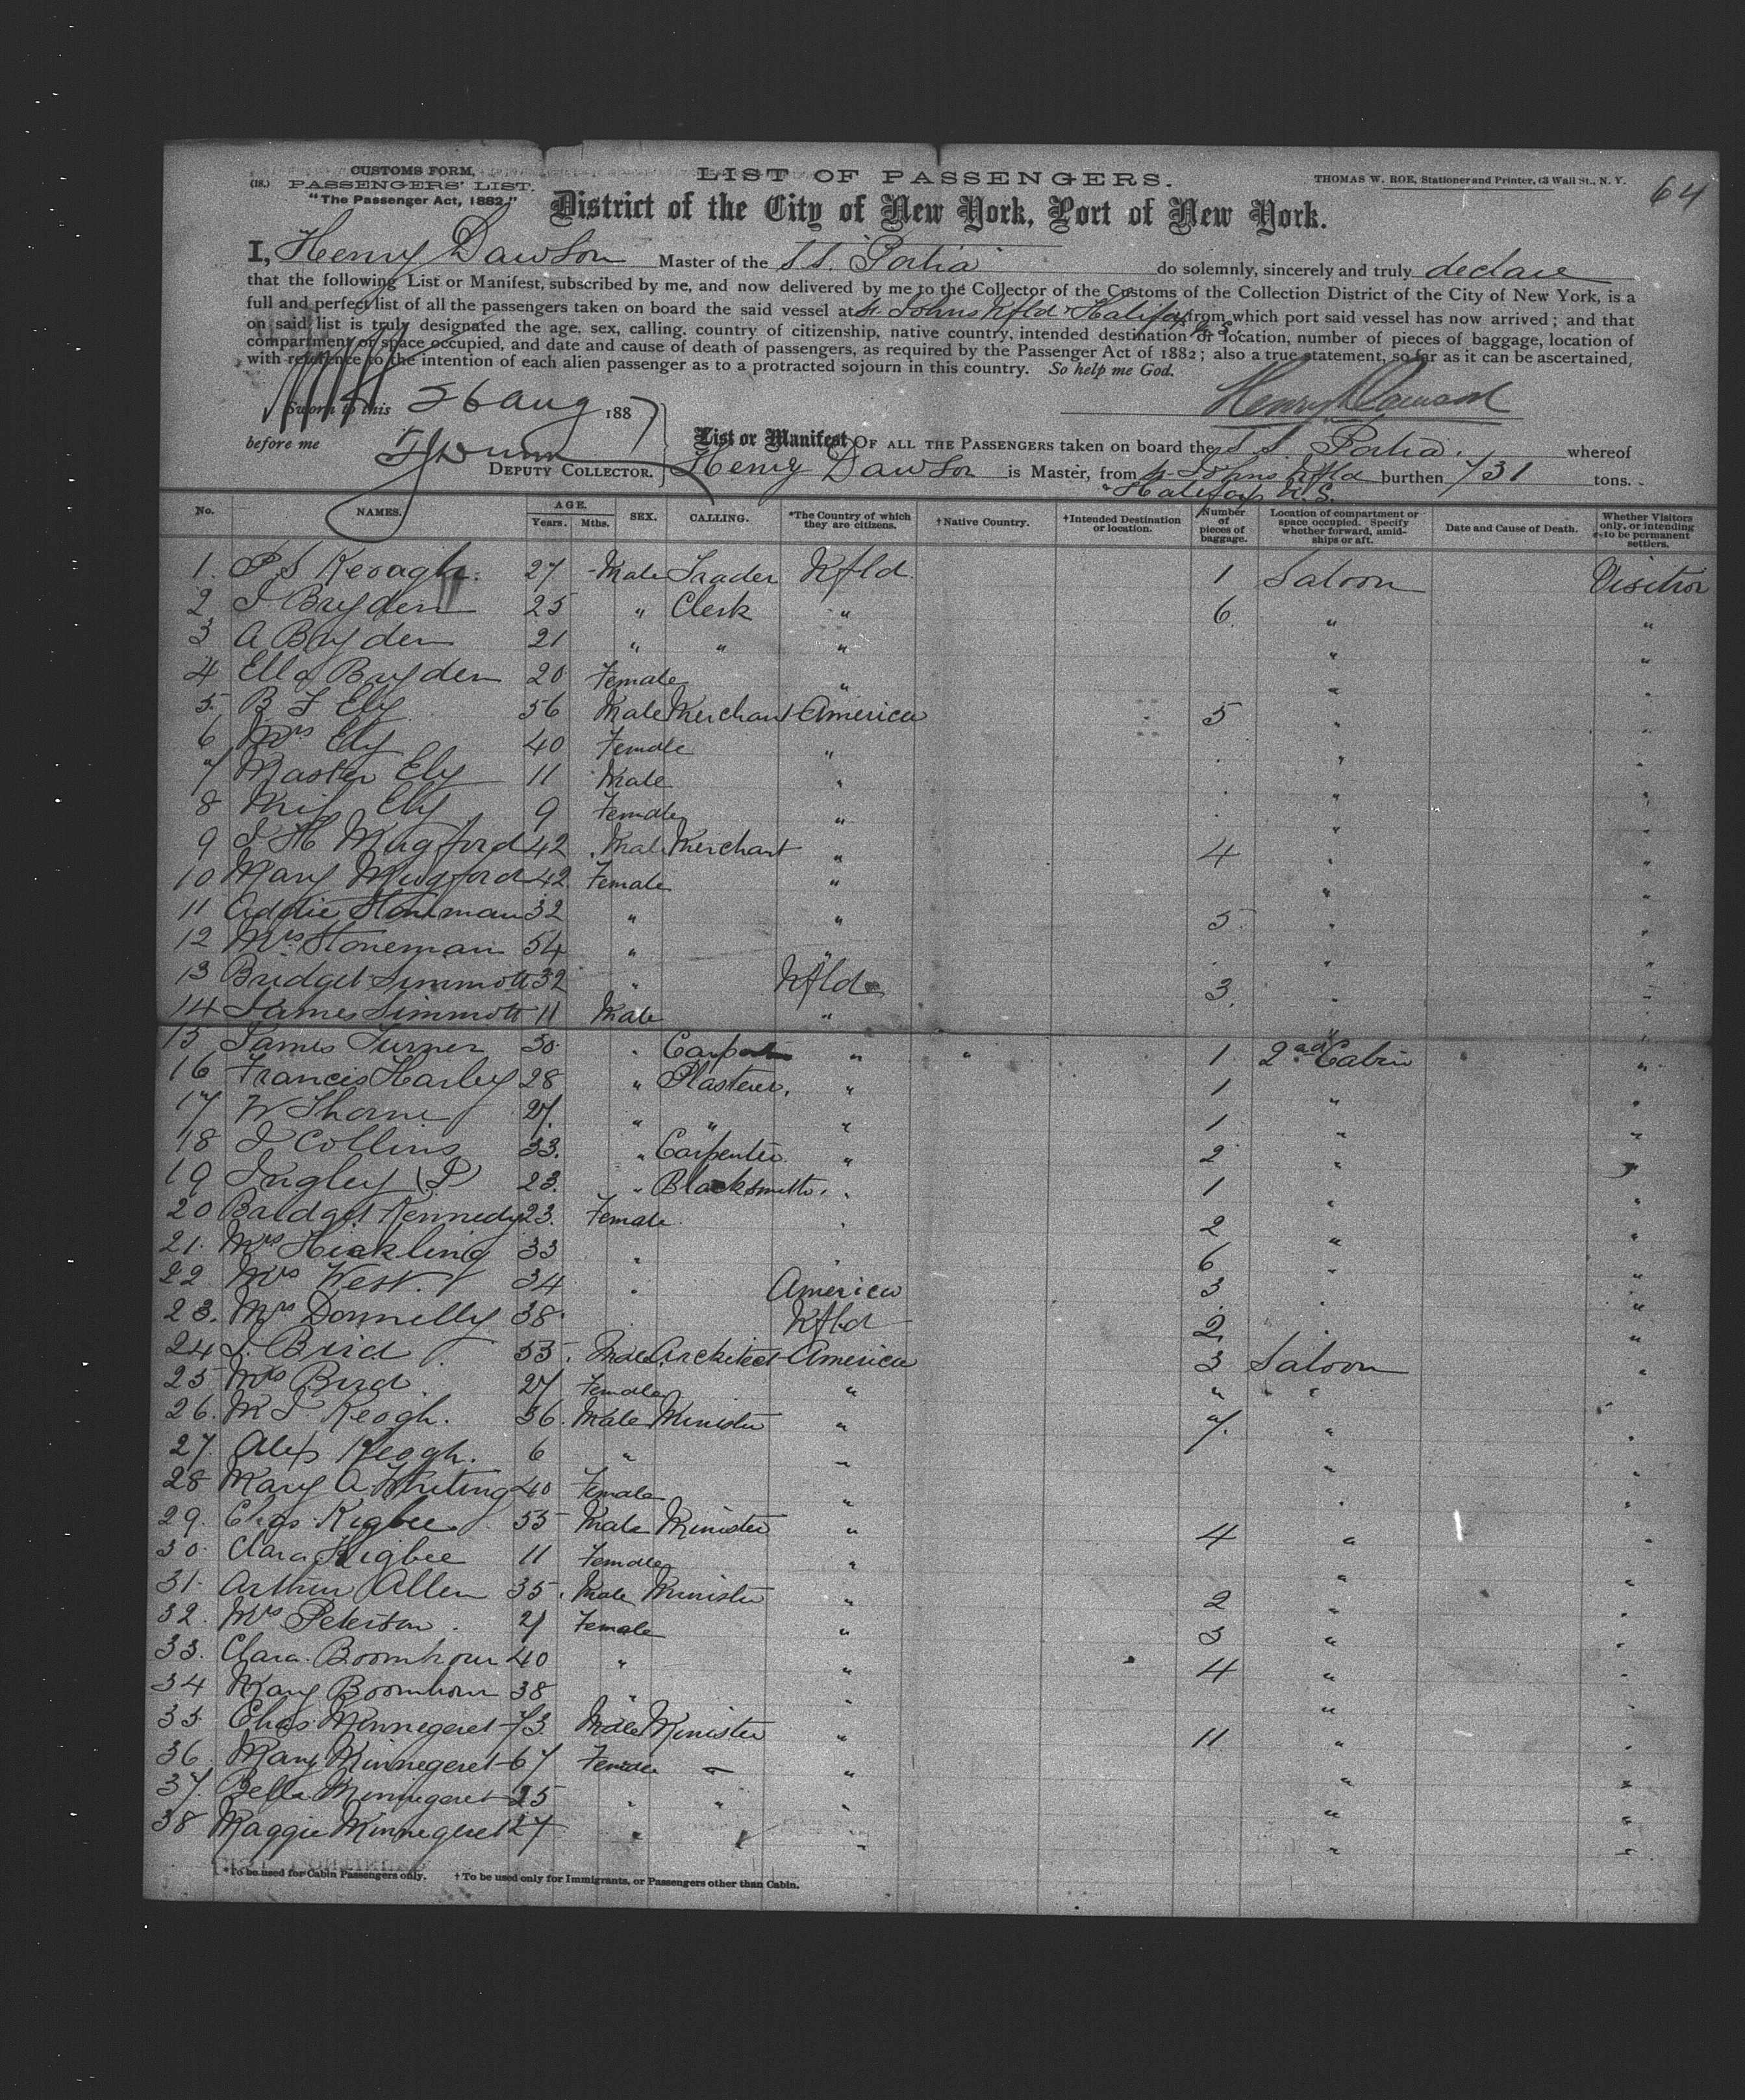 CUSTOMS FORM,
(18.) PASSENGERS' LIST.
"The Passenger Act, 1882."
LIST OF PASSENGERS.
THOMAS W. ROE, Stationer and Printer, 63 Wall St., N. Y.
64
District of the City of New York, Port of New York.
I, Henry Dawson Master of the S.S. Portia do solemnly, sincerely and truly declare
that the following List or Manifest, subscribed by me, and now delivered by me to the Collector of the Customs of the Collection District of the City of New York, is a
full and perfect list of all the passengers taken on board the said vessel at St. Johns Nfld Halifax N.S. from which port said vessel has now arrived; and that
on said list is truly designated the age, sex, calling, country of citizenship, native country, intended destination or location, number of pieces of baggage, location of
compartment or space occupied, and date and cause of death of passengers, as required by the Passenger Act of 1882; also a true statement, so far as it can be ascertained,
with reference to the intention of each alien passenger as to a protracted sojourn in this country. So help me God.
Henry Dawson
Sworn to this 26 Aug 1887
before me
DEPUTY COLLECTOR.
List or Manifest OF ALL THE PASSENGERS taken on board the S.S. Portia. whereof
Henry Dawson is Master, from St. Johns Nfld burthen 731 tons.
" Halifax N.S.
No. NAMES. AGE. Years. Mths. SEX. CALLING. *The Country of which they are citizens. †Native Country. †Intended Destination or location. Number of pieces of baggage. Location of compartment or space occupied. Specify whether forward, amidships or aft. Date and Cause of Death. Whether Visitors only, or intending to be permanent settlers.
1. P S Keough. 27 Male Trader Nfld. 1 Saloon Visitor
2 J Bryden 25 " Clerk " 6. " "
3 A Bryden 21 " " " " "
4 Ella Bryden 20 Female " " "
5. B F Ely 56 Male Merchant America 5 " "
6 Mrs Ely 40 Female " " "
7 Master Ely 11 Male " " "
8 Miss Ely 9 Female " " "
9 J H Mugford 42 Male Merchant " 4 " "
10 Mary Mugford 42 Female " " "
11 Addie Stoneman 32 " " 5 " "
12 Mrs Stoneman 54 " " " "
13 Bridget Simmott 32 " Nfld 3. " "
14 James Simmott 11 Male " " "
15 James Turner 30 " Carpenter " " 1 2nd Cabin "
16 Francis Harley 28 " Plasterer. " 1 " "
17 W Thorne 27. " " " 1 " "
18 J Collins 33. " Carpenter " 2 " "
19 Ingley (J) 23. " Blacksmith. " 1 " "
20 Bridget Kennedy 23. Female " 2 " "
21. Mrs Hickling 33 " " 6 " "
22. Mrs West. 34 " America 3 " "
23. Mrs Donnelly 38 Nfld 2. " "
24 J. Bird 53. Male Architect America 3 Saloon "
25 Mrs Bird 27 Female " " " "
26. M J Keogh. 36. Male Minister " 7. " "
27. Alex Keogh. 6 " " " "
28 Mary A Whiting 40 Female " " "
29. Chas Higbee 55 Male Minister " 4 " "
30. Clara Higbee 11 Female " " "
31. Arthur Allen 35. Male Minister " 2 " "
32. Mrs Peterson. 21 Female " 3 " "
33. Clara Boomhour 40 " " 4 " "
34 Mary Boomhour 38 " " " "
35 Chas Minnegeret 73 Male Minister " 11 " "
36. Mary Minnegeret 67 Female " " " "
37. Bella Minnegeret 25 " " " " "
38 Maggie Minnegeret 27 " " " "
*To be used for Cabin Passengers only. †To be used only for Immigrants, or Passengers other than Cabin.